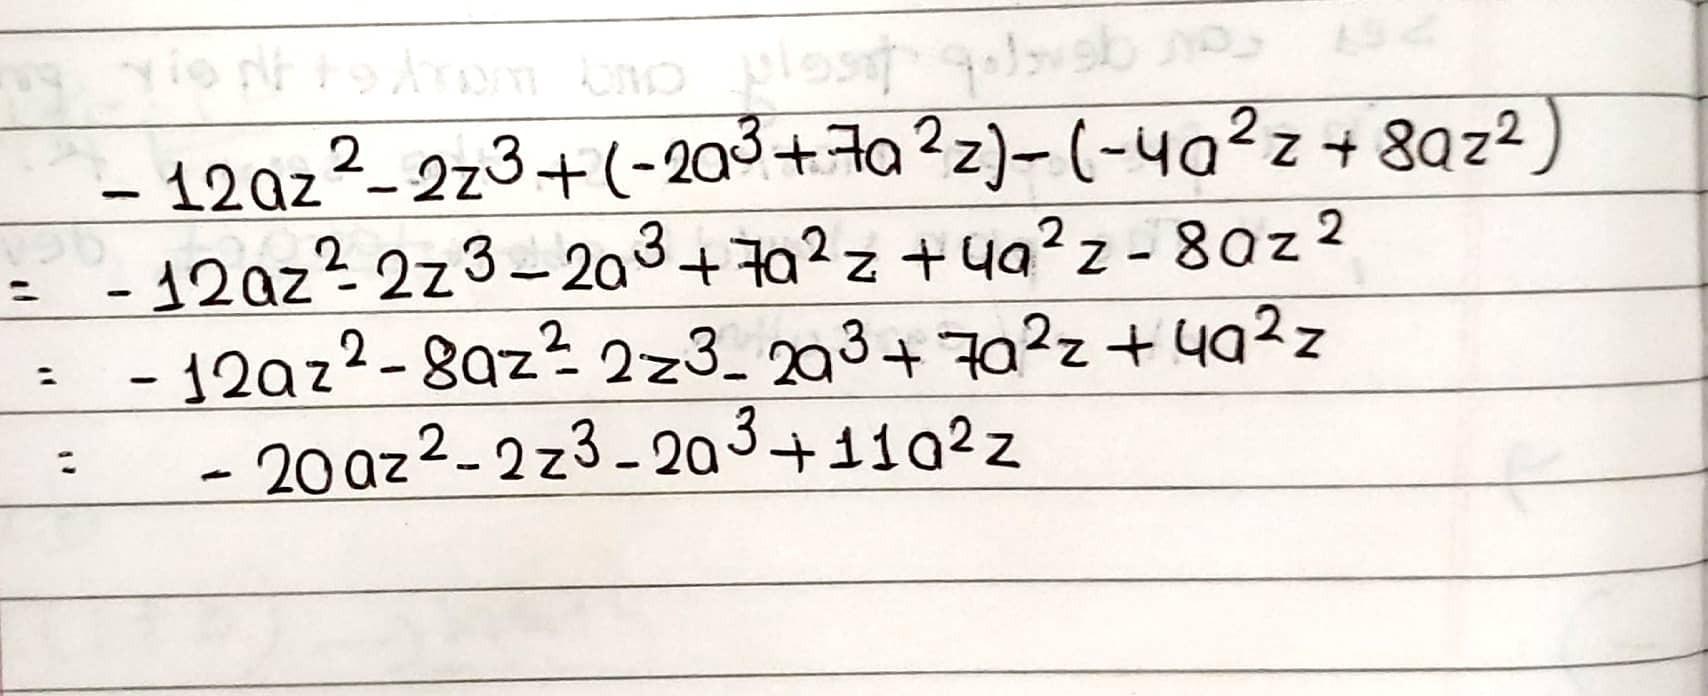 - 12az² - 2z³ + (-2a³ + 7a²z) - (-4a²z + 8az²)
= - 12az² - 2z³ - 2a³ + 7a²z + 4a²z - 8az²
= - 12az² - 8az² - 2z³ - 2a³ + 7a²z + 4a²z
= - 20az² - 2z³ - 2a³ + 11a²z